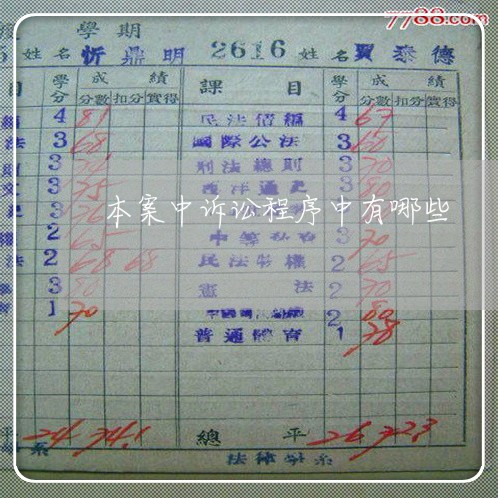 7788.com
學期
5 姓名 忻鼎明 2616 姓名 賈泰德
目 學分 成績 分數 扣分 實得 課目 學分 成績 分數 扣分 實得
4 81 民法債編 4 67
法 3 68 國際公法 3 60
3 刑法總則 3 70
3 75 西洋通史 3 80
3 76 3
本案中诉讼程序中有哪些
2 65 3 70
法 2 68 68 民法物權 2 65
3 80 憲法 2 70
育 1 70 2 80
普通體育 1 78
平 24 74.1 總平 26 72.3
系 法律學系